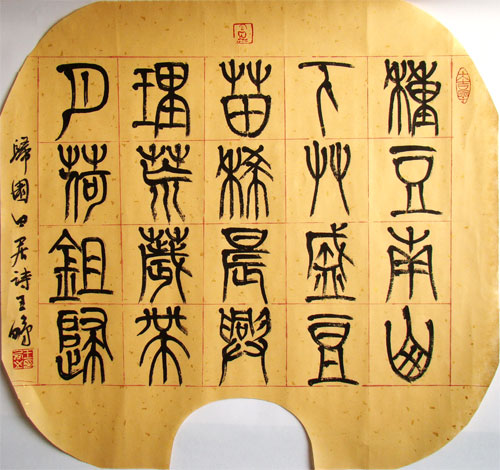 種豆南山
下艸盛豆
苗稀晨興
理荒薉帶
月荷鉏歸
歸園田居詩王